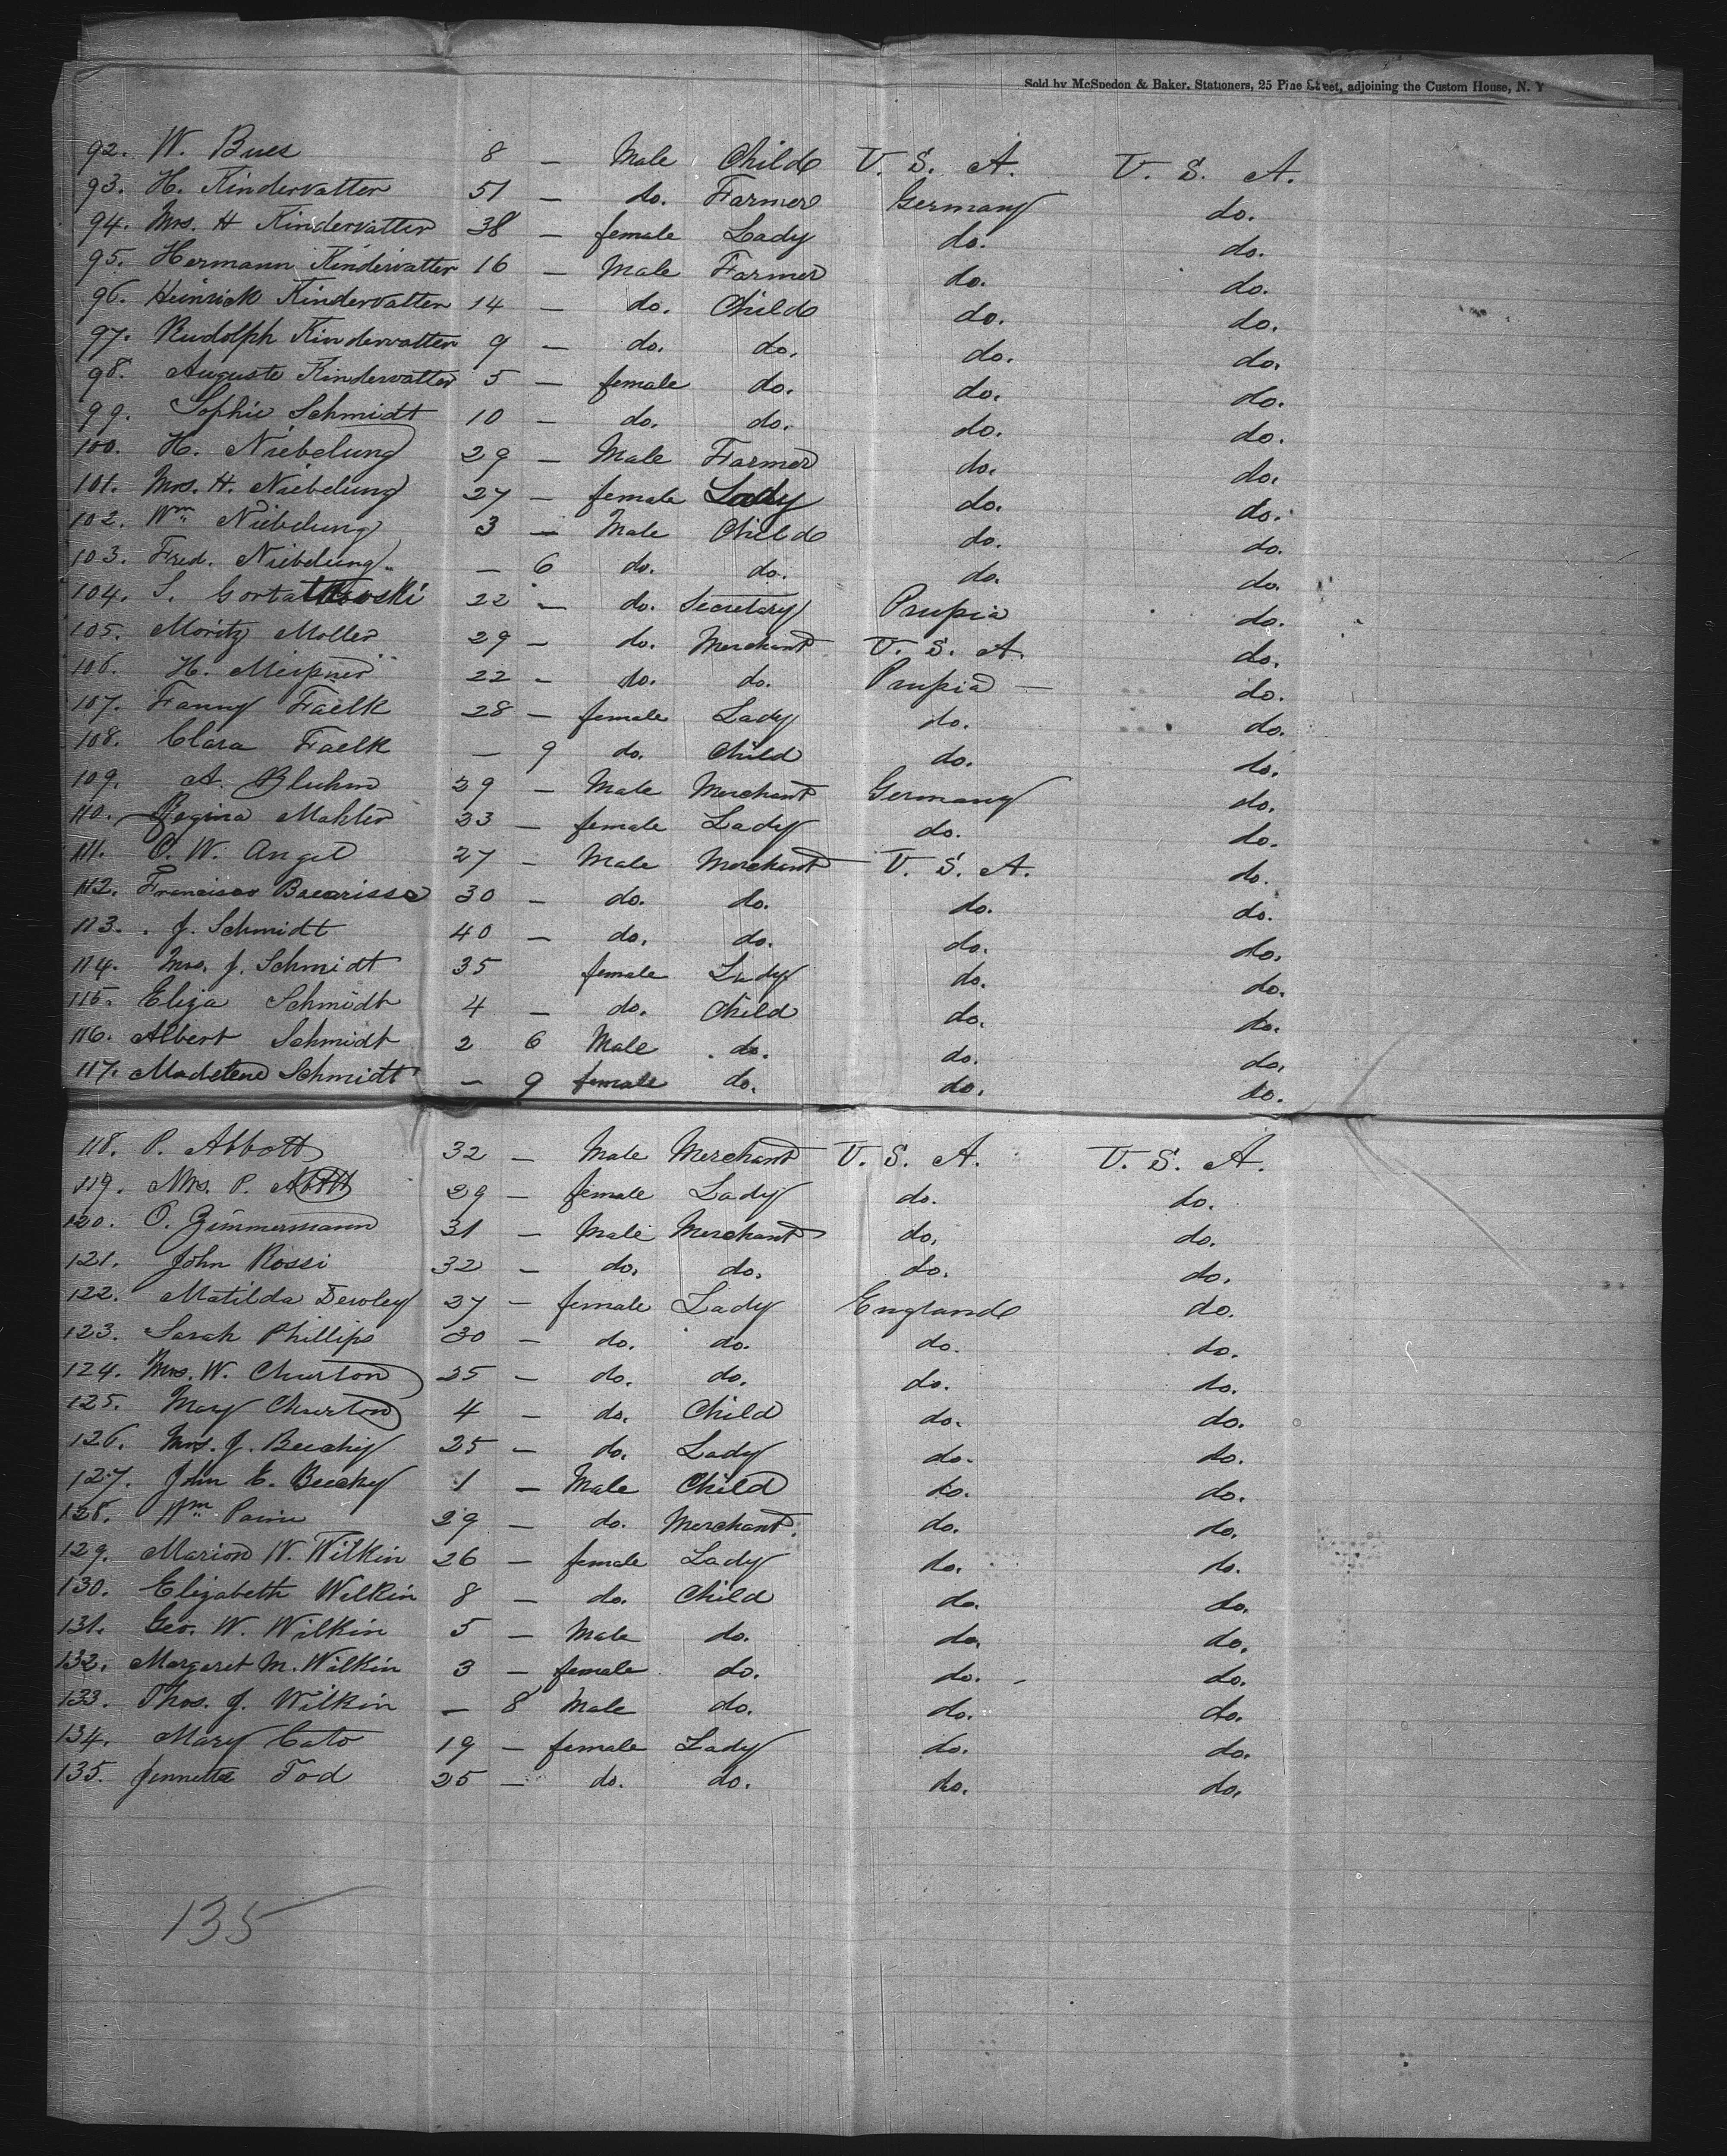 Sold by McSpedon & Baker, Stationers, 25 Pine Street, adjoining the Custom House, N. Y
92. W. Bues 8 — Male Child U. S. A. U. S. A.
93. H. Kindervatter 51 — do. Farmer Germany do.
94. Mrs. H Kindervatter 38 — female Lady do. do.
95. Hermann Kindervatter 16 — Male Farmer do. do.
96. Heinrich Kindervatter 14 — do. Child do. do.
97. Rudolph Kindervatter 9 — do. do. do. do.
98. Auguste Kindervatter 5 — female do. do. do.
99. Sophie Schmidt 10 — do. do. do. do.
100. H. Niebelung 29 — Male Farmer do. do.
101. Mrs. H. Niebelung 27 — female Lady do. do.
102. Wm Niebelung 3 — Male Child do. do.
103. Fred. Niebelung — 6 do. do. do. do.
104. S. Gortatkowski 22 — do. Secretary Prussia do.
105. Moritz Moller 29 — do. Merchant U. S. A. do.
106. H. Meissner 22 — do. do. Prussia — do.
107. Fanny Faelk 28 — female Lady do. do.
108. Clara Faelk — 9 do. Child do. do.
109. A. Bluhm 29 — Male Merchant Germany do.
110. Regina Mahler 33 — female Lady do. do.
111. O. W. Angel 27 — Male Merchant U. S. A. do.
112. Francisco 30 — do. do. do. do.
113. J. Schmidt 40 — do. do. do. do.
114. Mrs. J. Schmidt 35 female Lady do. do.
115. Eliza Schmidt 4 — do. Child do. do.
116. Albert Schmidt 2 6 Male do. do. do.
117. Madelene Schmidt — 9 female do. do. do.
118. P. Abbott 32 — Male Merchant U. S. A. U. S. A.
119. Mrs. P. Abbott 29 — female Lady do. do.
120. O. Zimmermann 31 — Male Merchant do. do.
121. John Rossi 32 — do. do. do. do.
122. Matilda 27 — female Lady England do.
123. Sarah Phillips 30 — do. do. do. do.
124. Mrs. W. Churton 25 — do. do. do. do.
125. Mary Churton 4 — do. Child do. do.
126. Mrs. J. 25 — do. Lady do. do.
127. John E. 1 — Male Child do. do.
128. Wm Paine 29 — do. Merchant. do. do.
129. Marion W. Wilkin 26 — female Lady do. do.
130. Elizabeth Wilkin 8 — do. Child do. do.
131. Geo. W. Wilkin 5 — Male do. do. do.
132. Margaret M. Wilkin 3 — female do. do. do.
133. Thos. J. Wilkin — 8 Male do. do. do.
134. Mary Cato 19 — female Lady do. do.
135. Jennette Tod 25 — do. do. do. do.
135